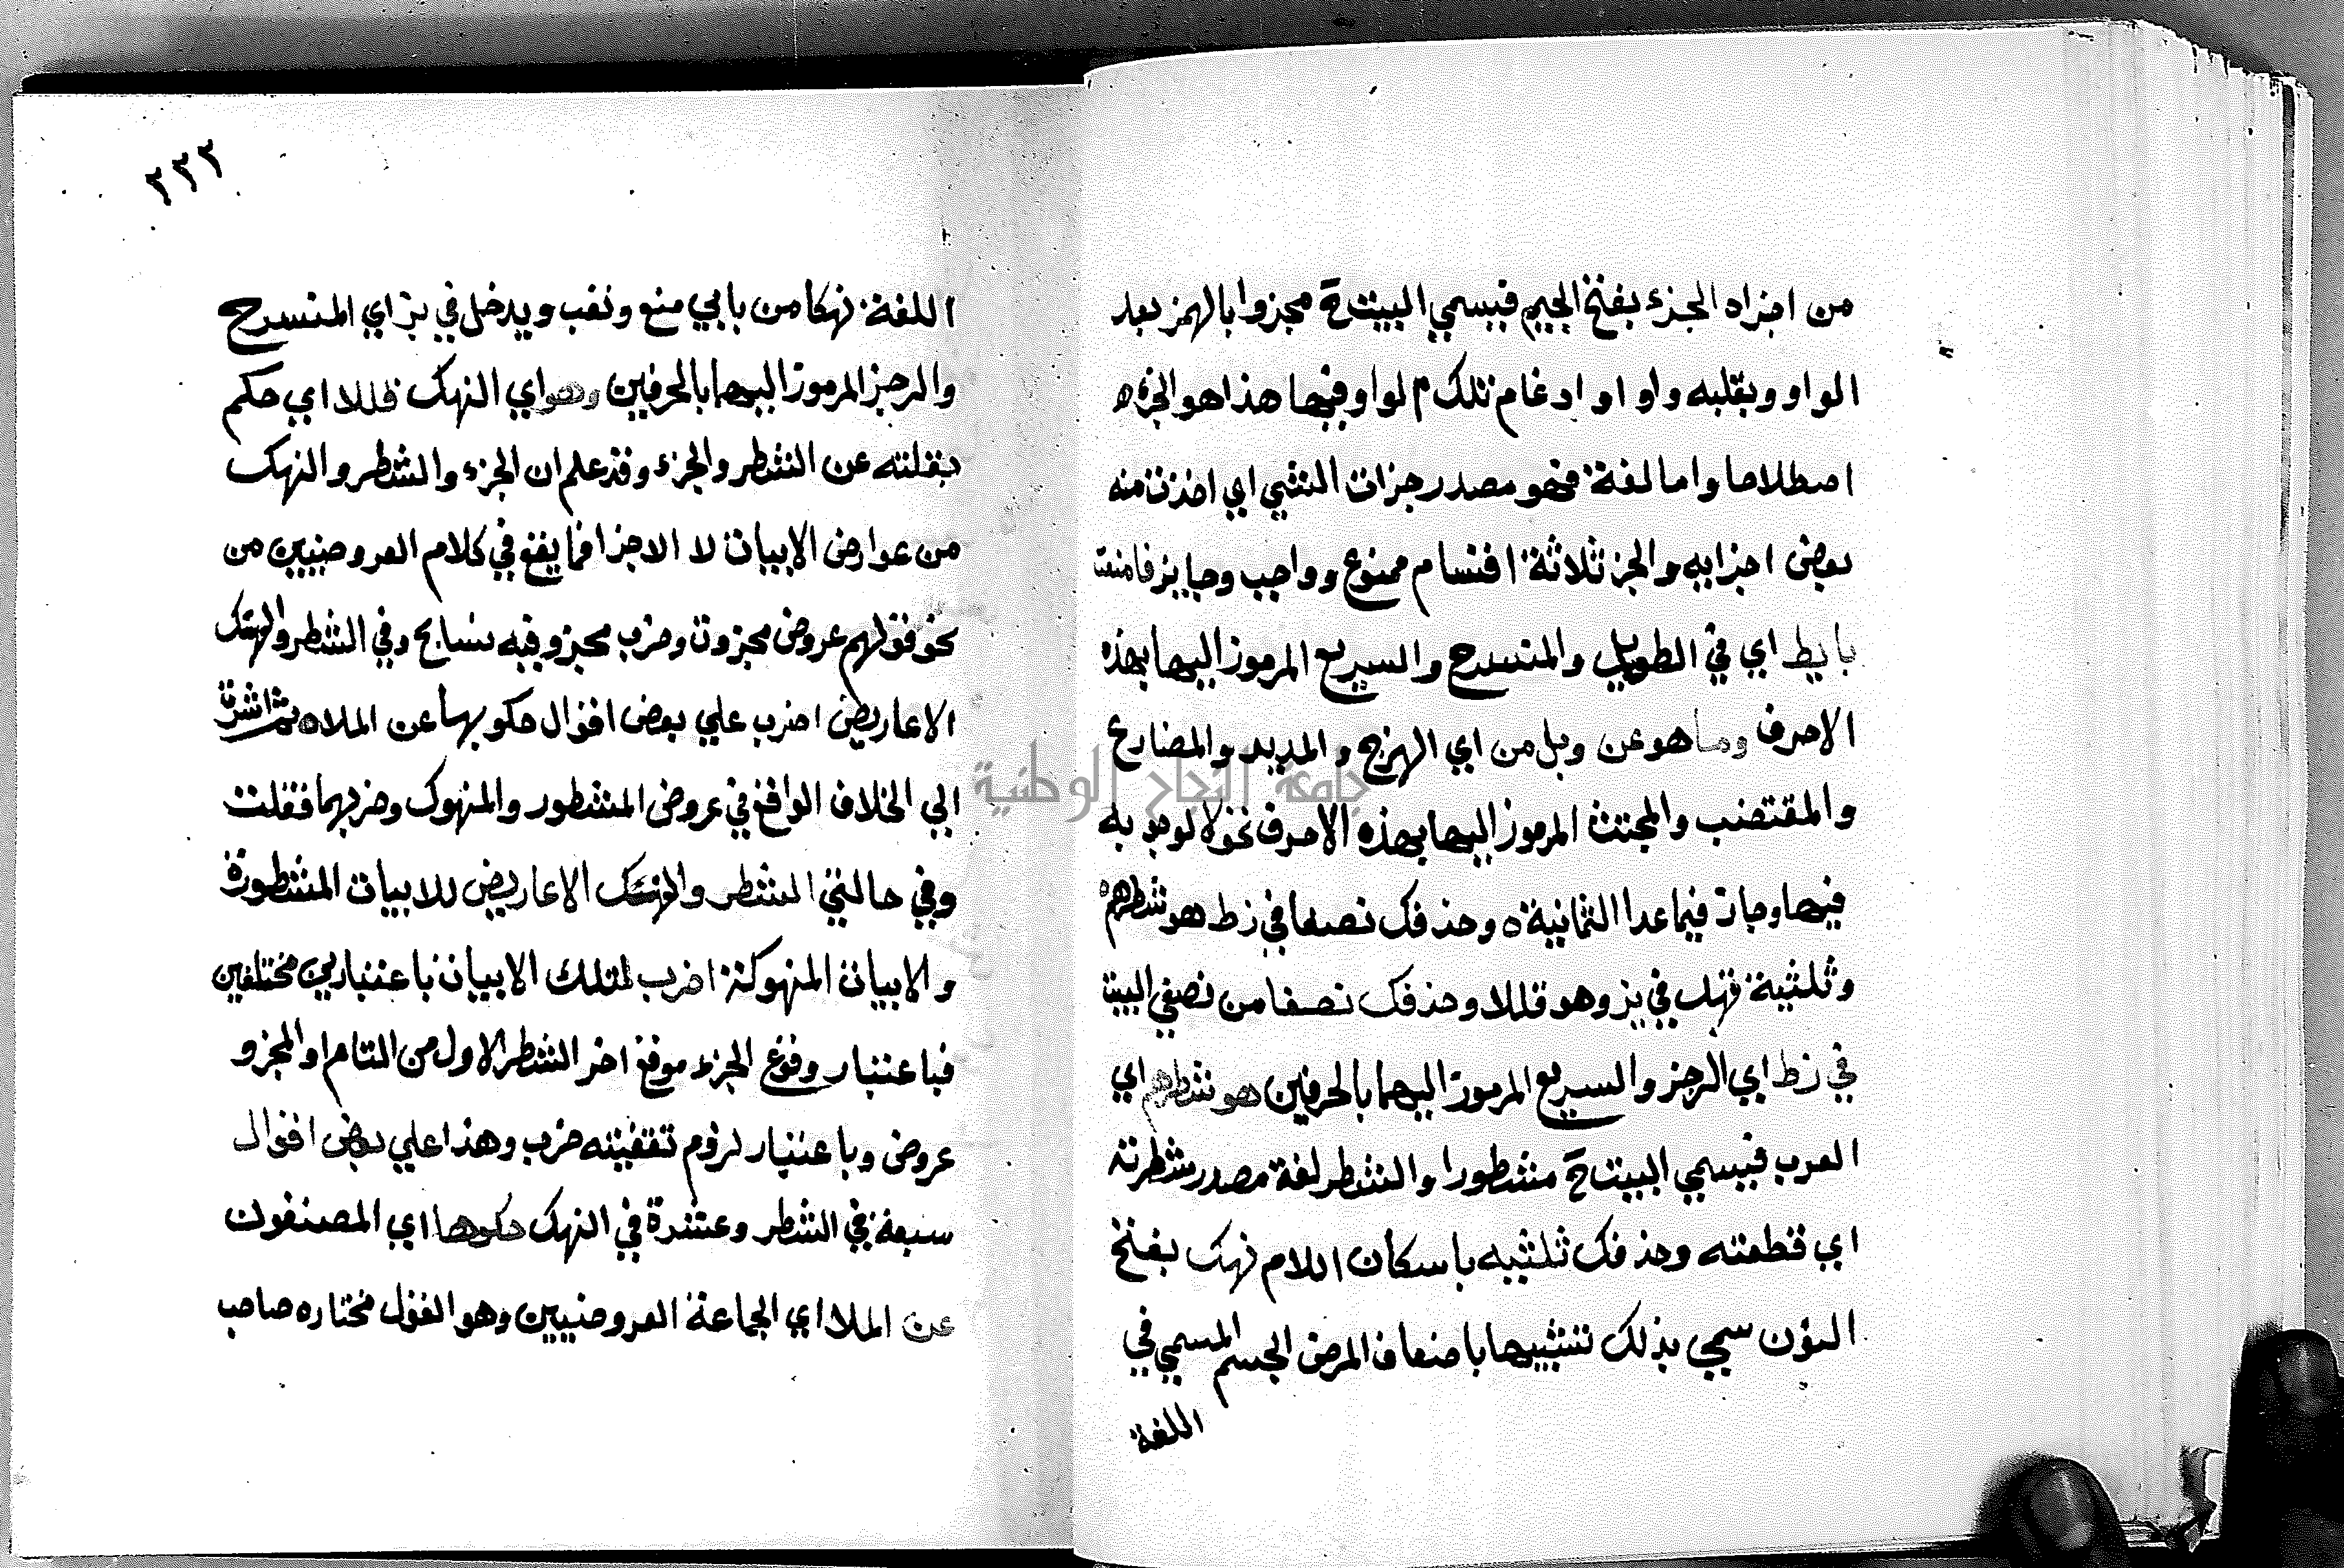 من اجزاه الجزء بفتح الجيم فيسمي البيت ح مجزوا بالهمز بعد
الواو وبقلبه واو او ادغام تلك م لواو فيها هذا هو الجزء ه
اصطلاحا واما لغة فهو مصدر جزات الشي اي اخذت منه
بعض اجزايه والجز ثلاثة اقسام ممنوع وواجب وجايز فامنعته
بايط اي في الطويل والمنسرح والسريع المرموز اليها بهذه
الاحرف وما هو عن وبل من اي الهزج والمديد والمضارع
والمقتضب والمجتث المرموز اليها بهذه الاحرف نحولا لوجوبه
فيها وجاز فيما عدا الثمانية ه وحذفك نصفا في زط هو شطرهم ه
وثلثية نهك في يز وهو قللا وحذفك نصفا من نصفي البيت
في زط اي الرجز والسريع المرموز اليهما بالحرفين هو شطرهم اي
العرب فيسمي البيت ح مشطورا والشطر لغة مصدر شطرته
اي قطعته وحذفك ثلثيه باسكان اللام نهك بفتح
النون سمي بذلك تشبيها باضعاف المرض الجسم المسمي في
اللغة
٢٣٢
اللغة نهكا من بابي منع وتعب ويدخل في يز اي المنسرح
والرجز المرموز اليهما بالحرفين وهو اي النهك قللا اي حكم
بقلته عن الشطر والجزء وقد علم ان الجزء والشطر والنهك
من عوارض الابيات لا الاجزا فما يقع في كلام العروضيين من
نحو قولهم عروض مجزوة وضرب مجزو فيه تسامح وفي الشطر والهتك
الاعاريض اضرب علي بعض اقوال حكو بها عن الملا ه ثم اشرت
الي الخلاف الواقع في عروض المشطور والمنهوك وضربهما فقلت
وفي حالتي الشطر والنهك الاعاريض للابيات المشطورة
والابيات المنهوكة اضرب لتلك الابيات باعتبارين مختلفين
فباعتبار وقوع الجزء موقع اخر الشطر الاول من التام او المجزو
عروض وباعتبار لزوم تقفيته ضرب وهذا علي بعض اقوال
سبعة في الشطر وعشرة في النهك حكوها اي المصنفون
عن الملا اي الجماعة العروضيين وهو القول مختاره صاحب
جامعة النجاح الوطنية